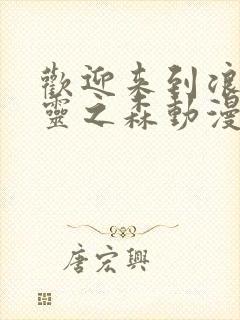 歡迎来到浪
靈之森動漫
唐宏興